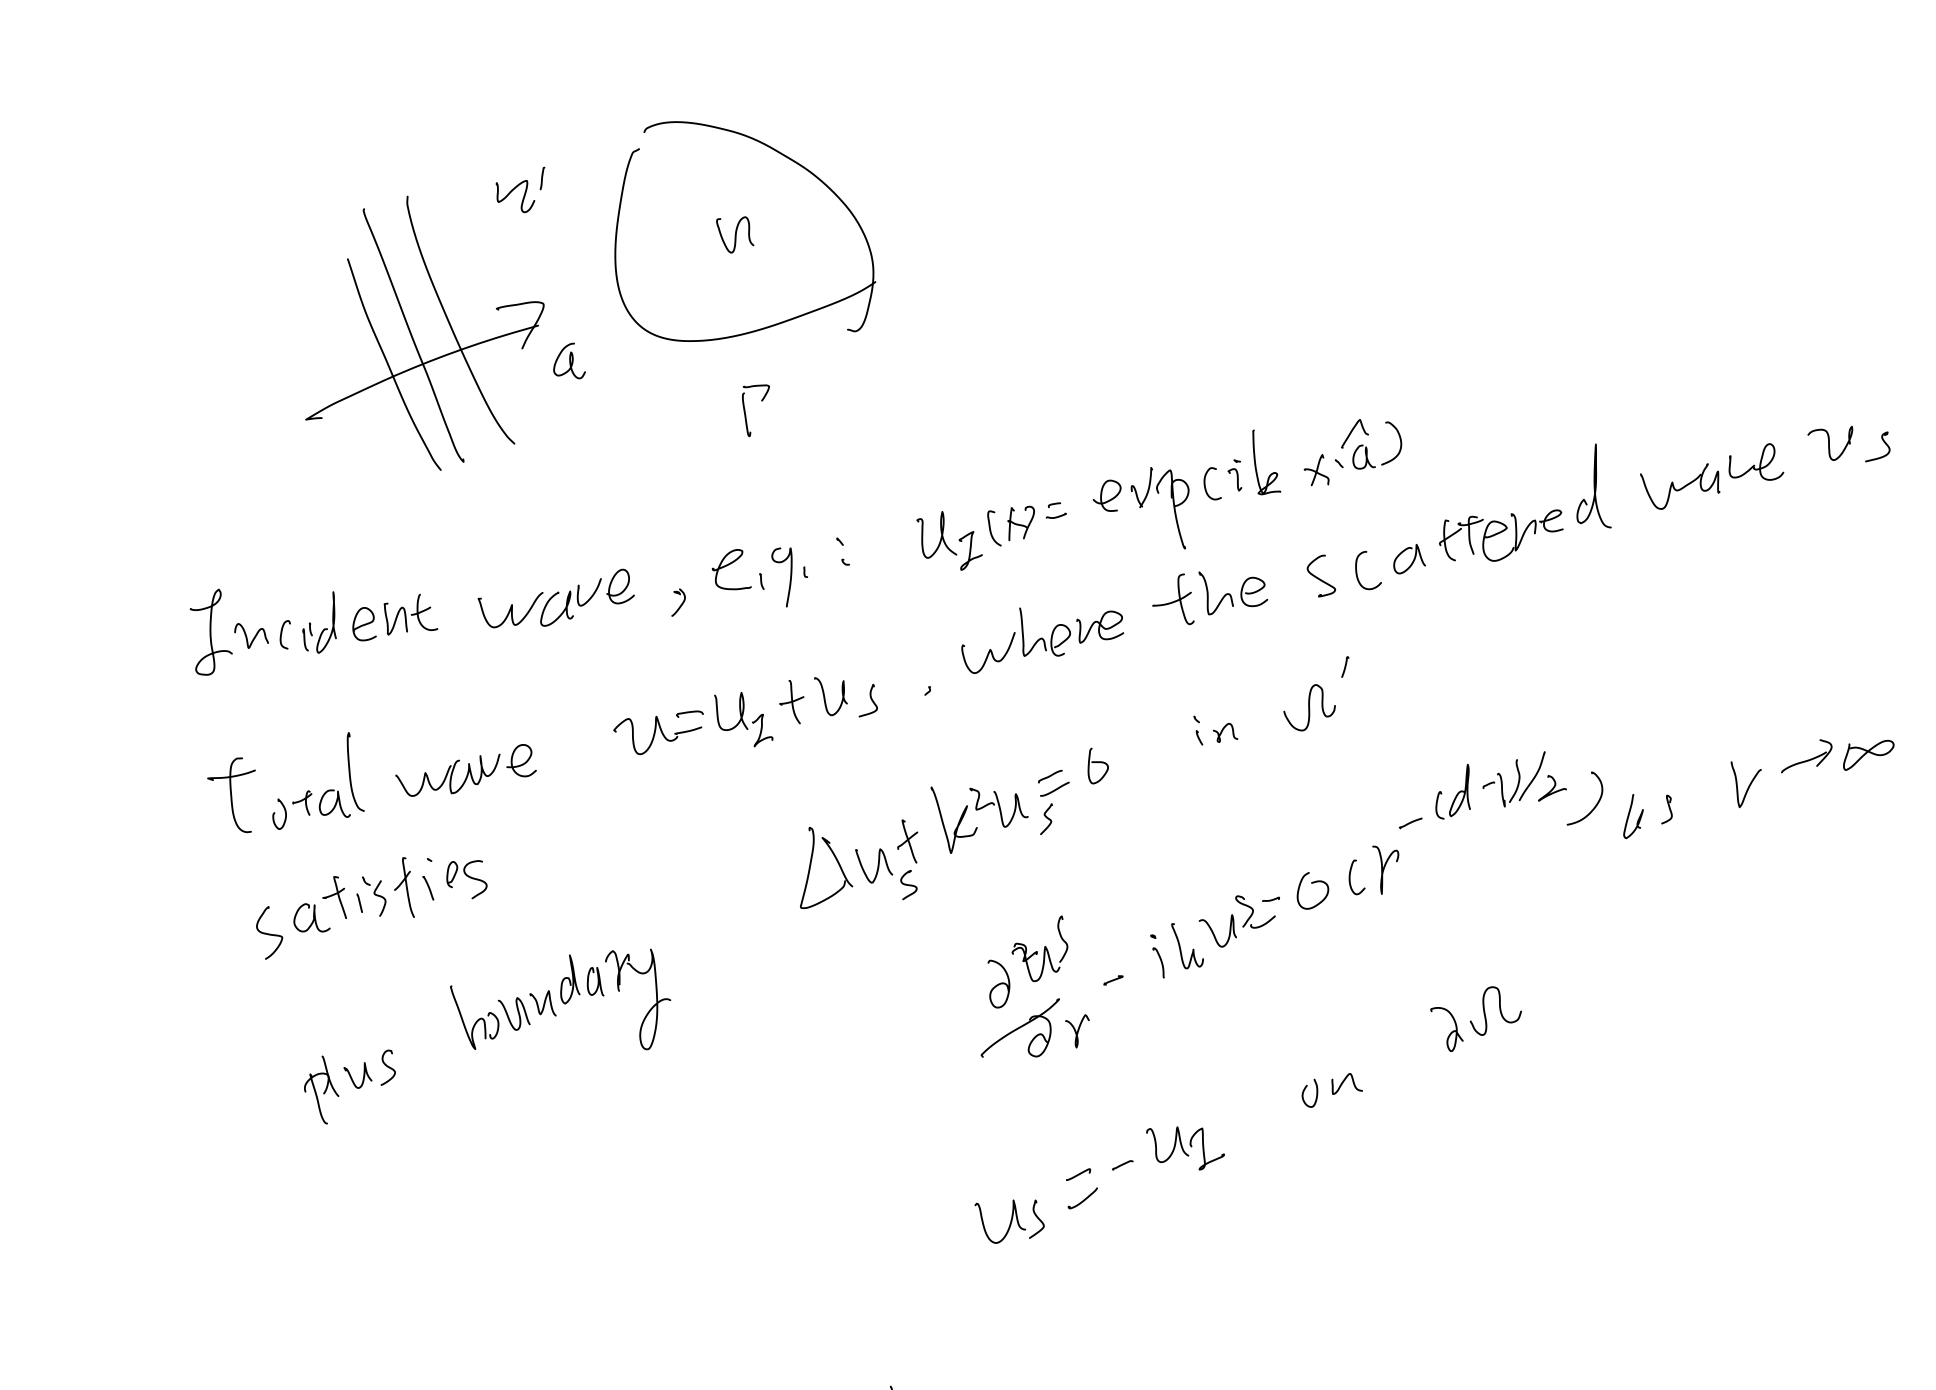 Ω'
Ω
a
Γ
Incident wave, e.g.: u_I(x) = exp(ik x·â)
Total wave u=u_I+u_s. where the scattered wave u_s
satisfies Δu_s+k²u_s=0 in Ω'
plus boundary ∂u^s/∂r - iku^s=o(r^{-(d-1)/2}) as r→∞
u_s=-u_I on ∂Ω